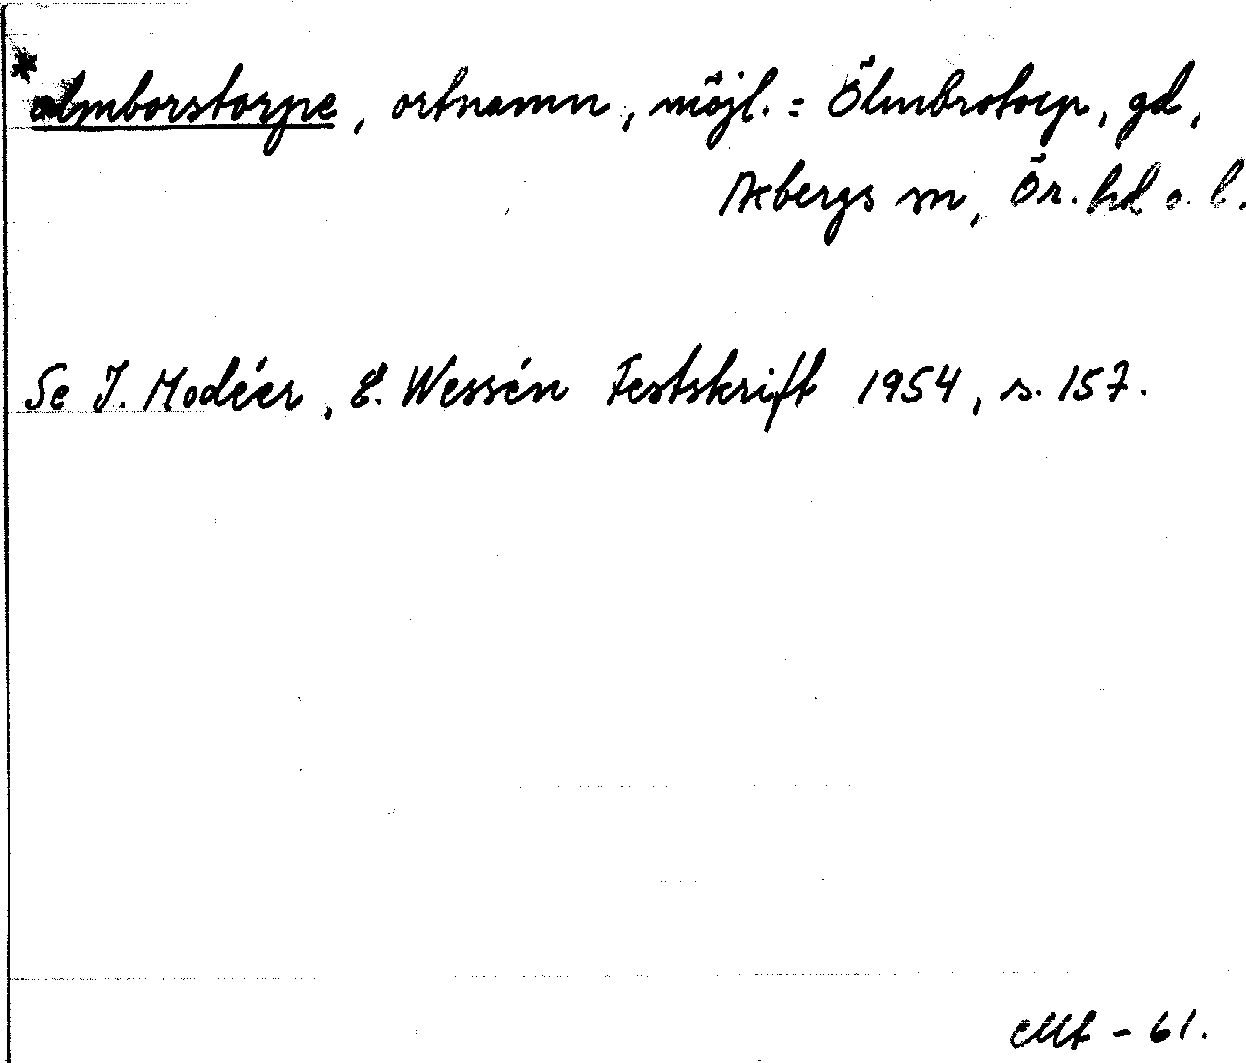 *olmborstorpe, ortnamn, möjl. = Ölmbrotorp, gd,
Axbergs sn, Ör. hd o. l.
Se I. Modéer, E. Wessén Festskrift 1954, s. 157.
- 61.